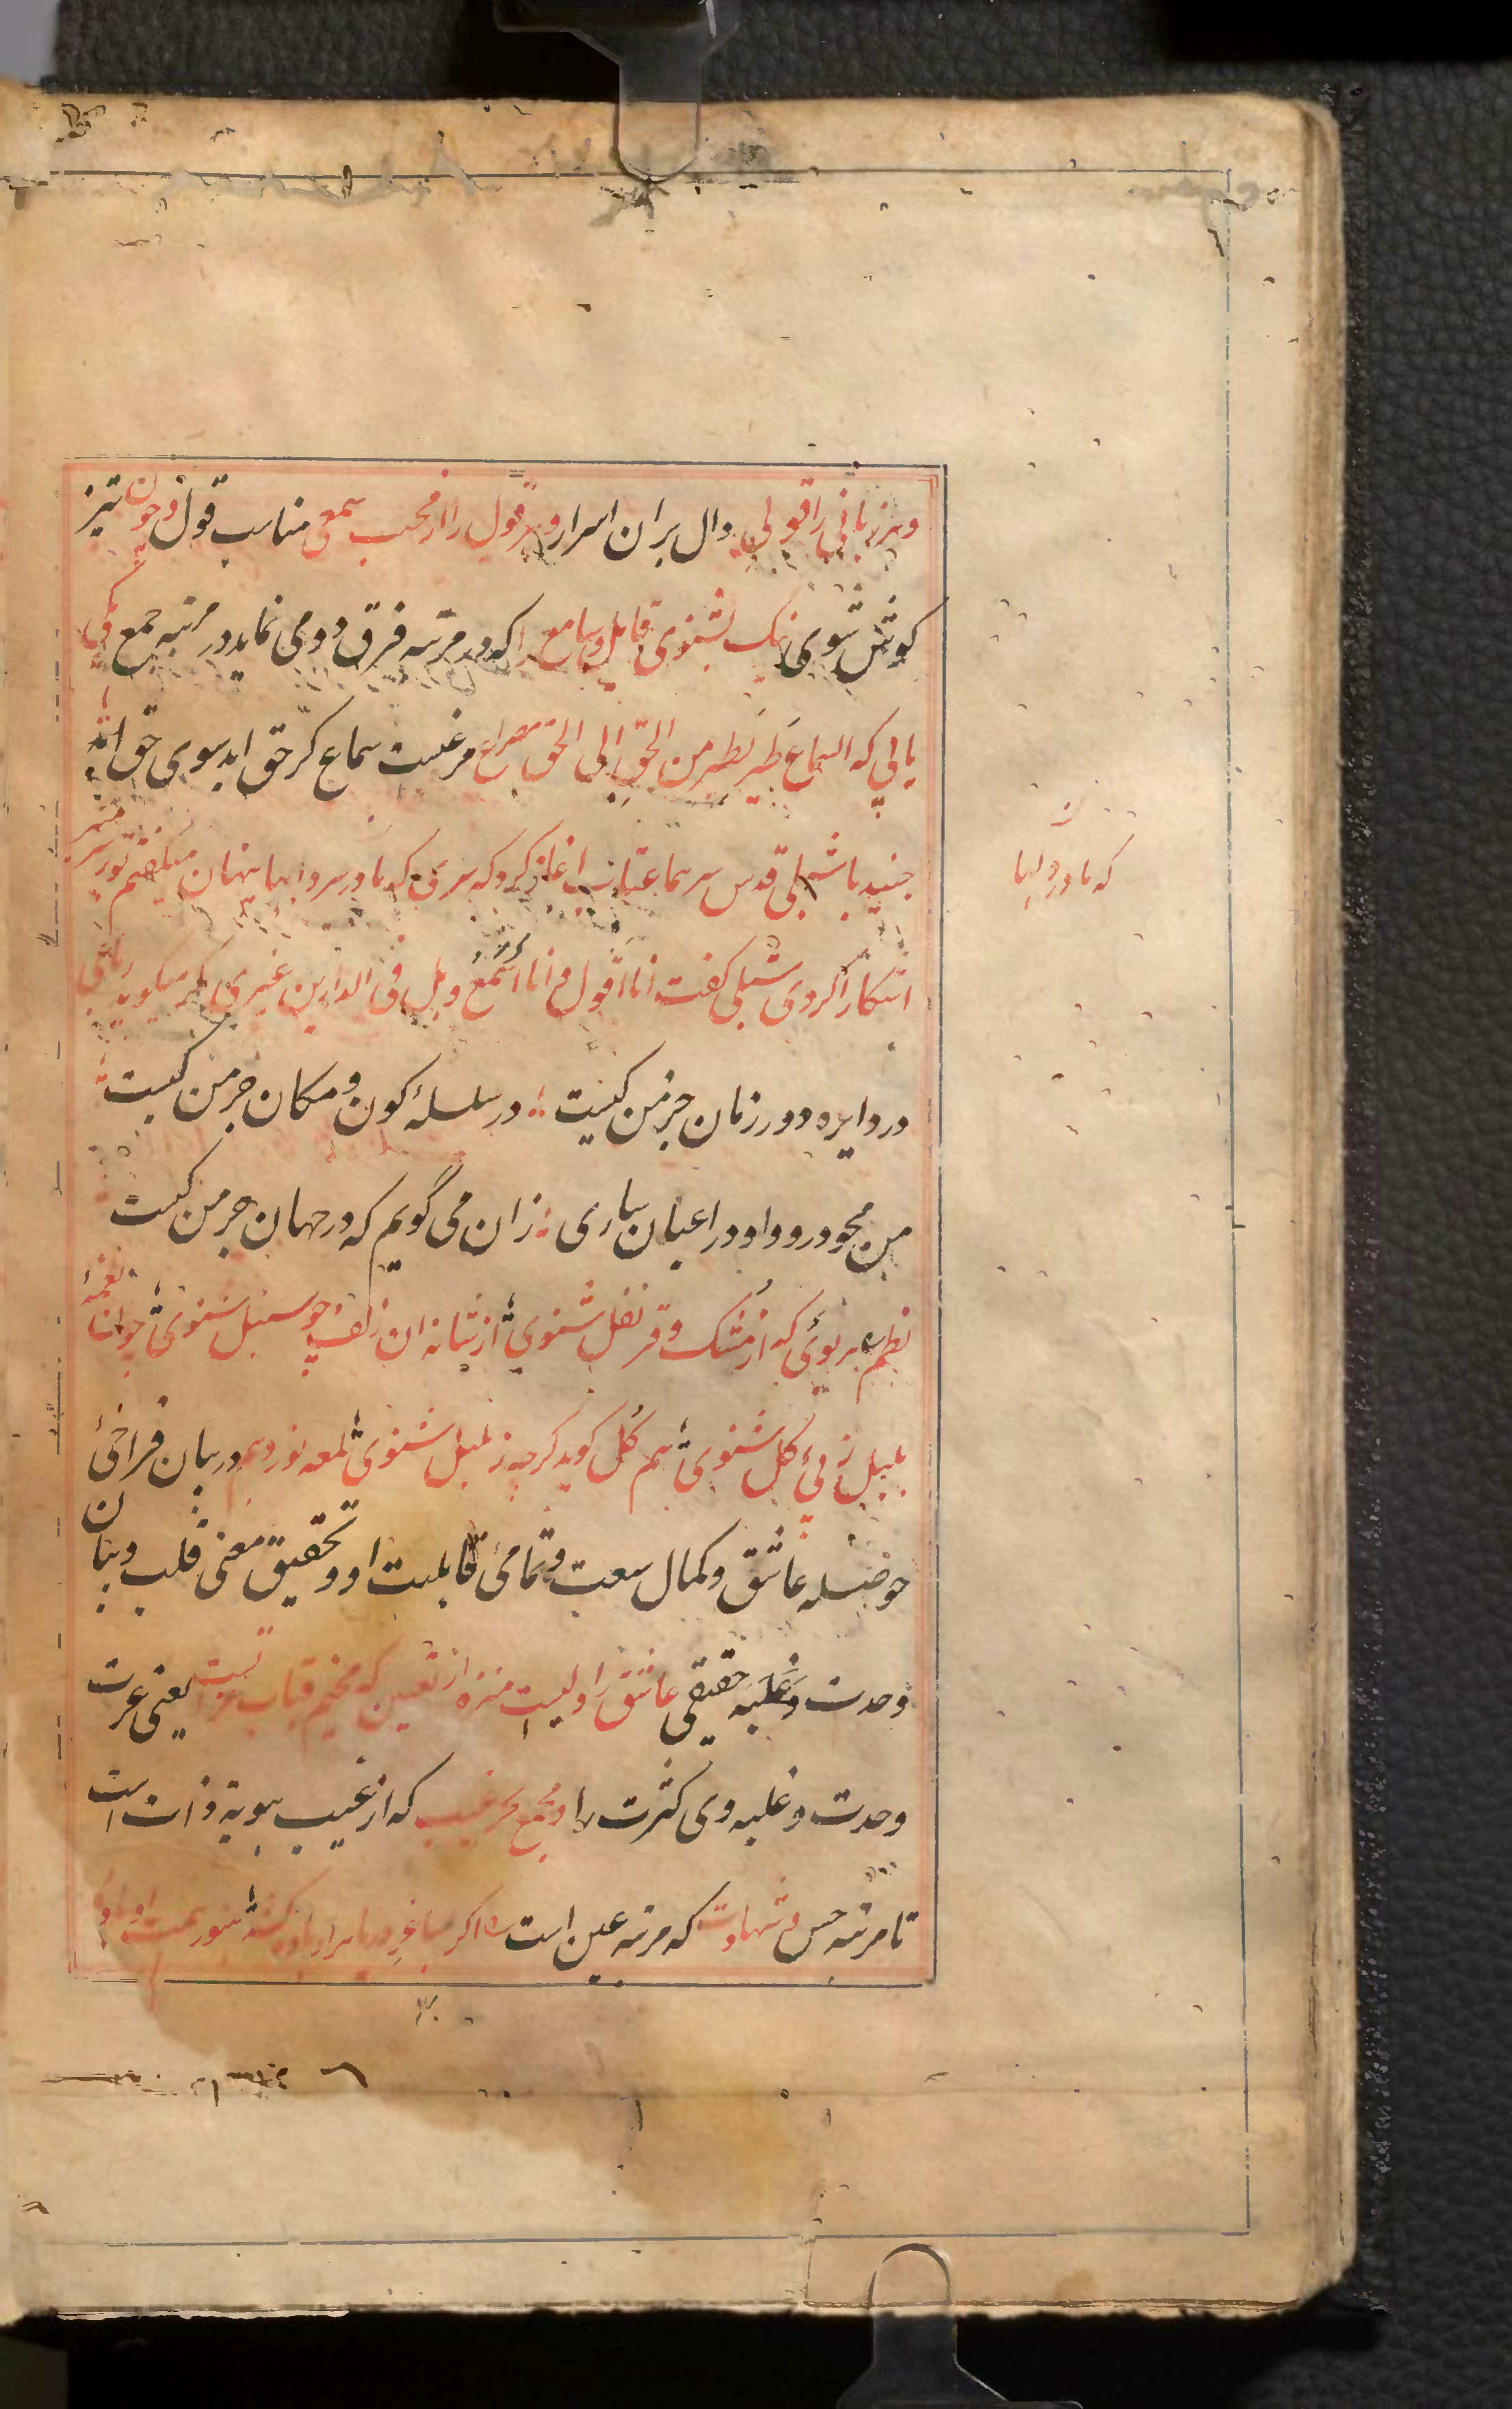 و هر زبانی را قولی دال بران اسرار و هر قول را از محب سمعی مناسب قول و چون تیز
کوش شوی نیک بشنوی قایل و سامع را که در مرتبه فرق دو می نماید در مرتبه جمع یکی
یابی که السماع طَیر نَطیر من الحق الی الحق مصراع مرغیست سماع کز حق اید سوی حق اند
جنید با شبلی قدس سرهما عتاب اغاز کرد که سری که ما در سردابها پنهان میکفتیم تو بر سر منبر
اشکارا کردی شبلی کفت انا اَقول و انا اَسْمَعُ و هل فی الدارین غیری مکر میکوید رباعی
در دایره دور زمان جز من کیست در سلسلهٔ کون و مکان جز من کیست
من محو درو و او در اعیان ساری زان می گویم که در جهان جز من کیست
نظم هر بوئی که از مُشک و قرنفل شنوی از شانه ان زلف چو سنبل شنوی چون نغمهٔ
بلبل ز پی کل شنوی هم کُل کوید کرچه ز بلبل شنوی لمعه نوزدهم در بیان فراخیٔ
حوصله عاشق و کمال سعت و تمامیٔ قابلیت او و تحقیق معنی قلب و بیان
وحدت و غَلَبَه حقیقی عاشق را دلیست منزه از تعین که مخیم قباب عزتست یعنی عزت
وحدت و غلبه وی کثرت را و مجمع بحر غیب که از غیب هویة ذات است
تا مرتبه حس و شهادت که مرتبه عین است اگر ساغر دریا هزار باده کشد هنوز همت او
که ما در دلها